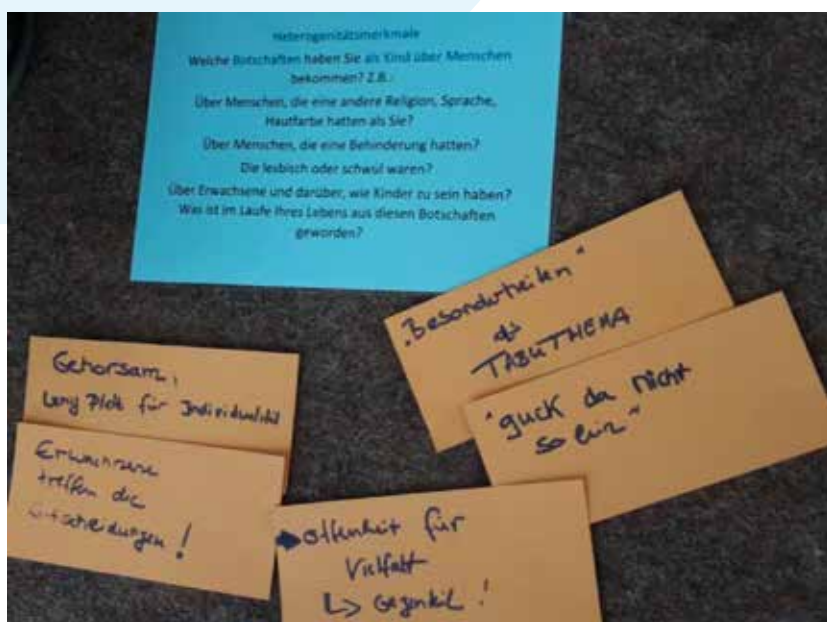 Heterogenitätsmerkmale
Welche Botschaften haben Sie als Kind über Menschen
bekommen? Z.B.:
Über Menschen, die eine andere Religion, Sprache,
Hautfarbe hatten als Sie?
Über Menschen, die eine Behinderung hatten?
Die lesbisch oder schwul waren?
Über Erwachsene und darüber, wie Kinder zu sein haben?
Was ist im Laufe Ihres Lebens aus diesen Botschaften
geworden?
„Besonderheiten"
TABUTHEMA
"guck da nicht
so hin"
Gehorsam,
wenig Platz für Individualität
Erwachsene
treffen die
Entscheidungen!
➡ Offenheit für
Vielfalt
↳ Gegenteil!